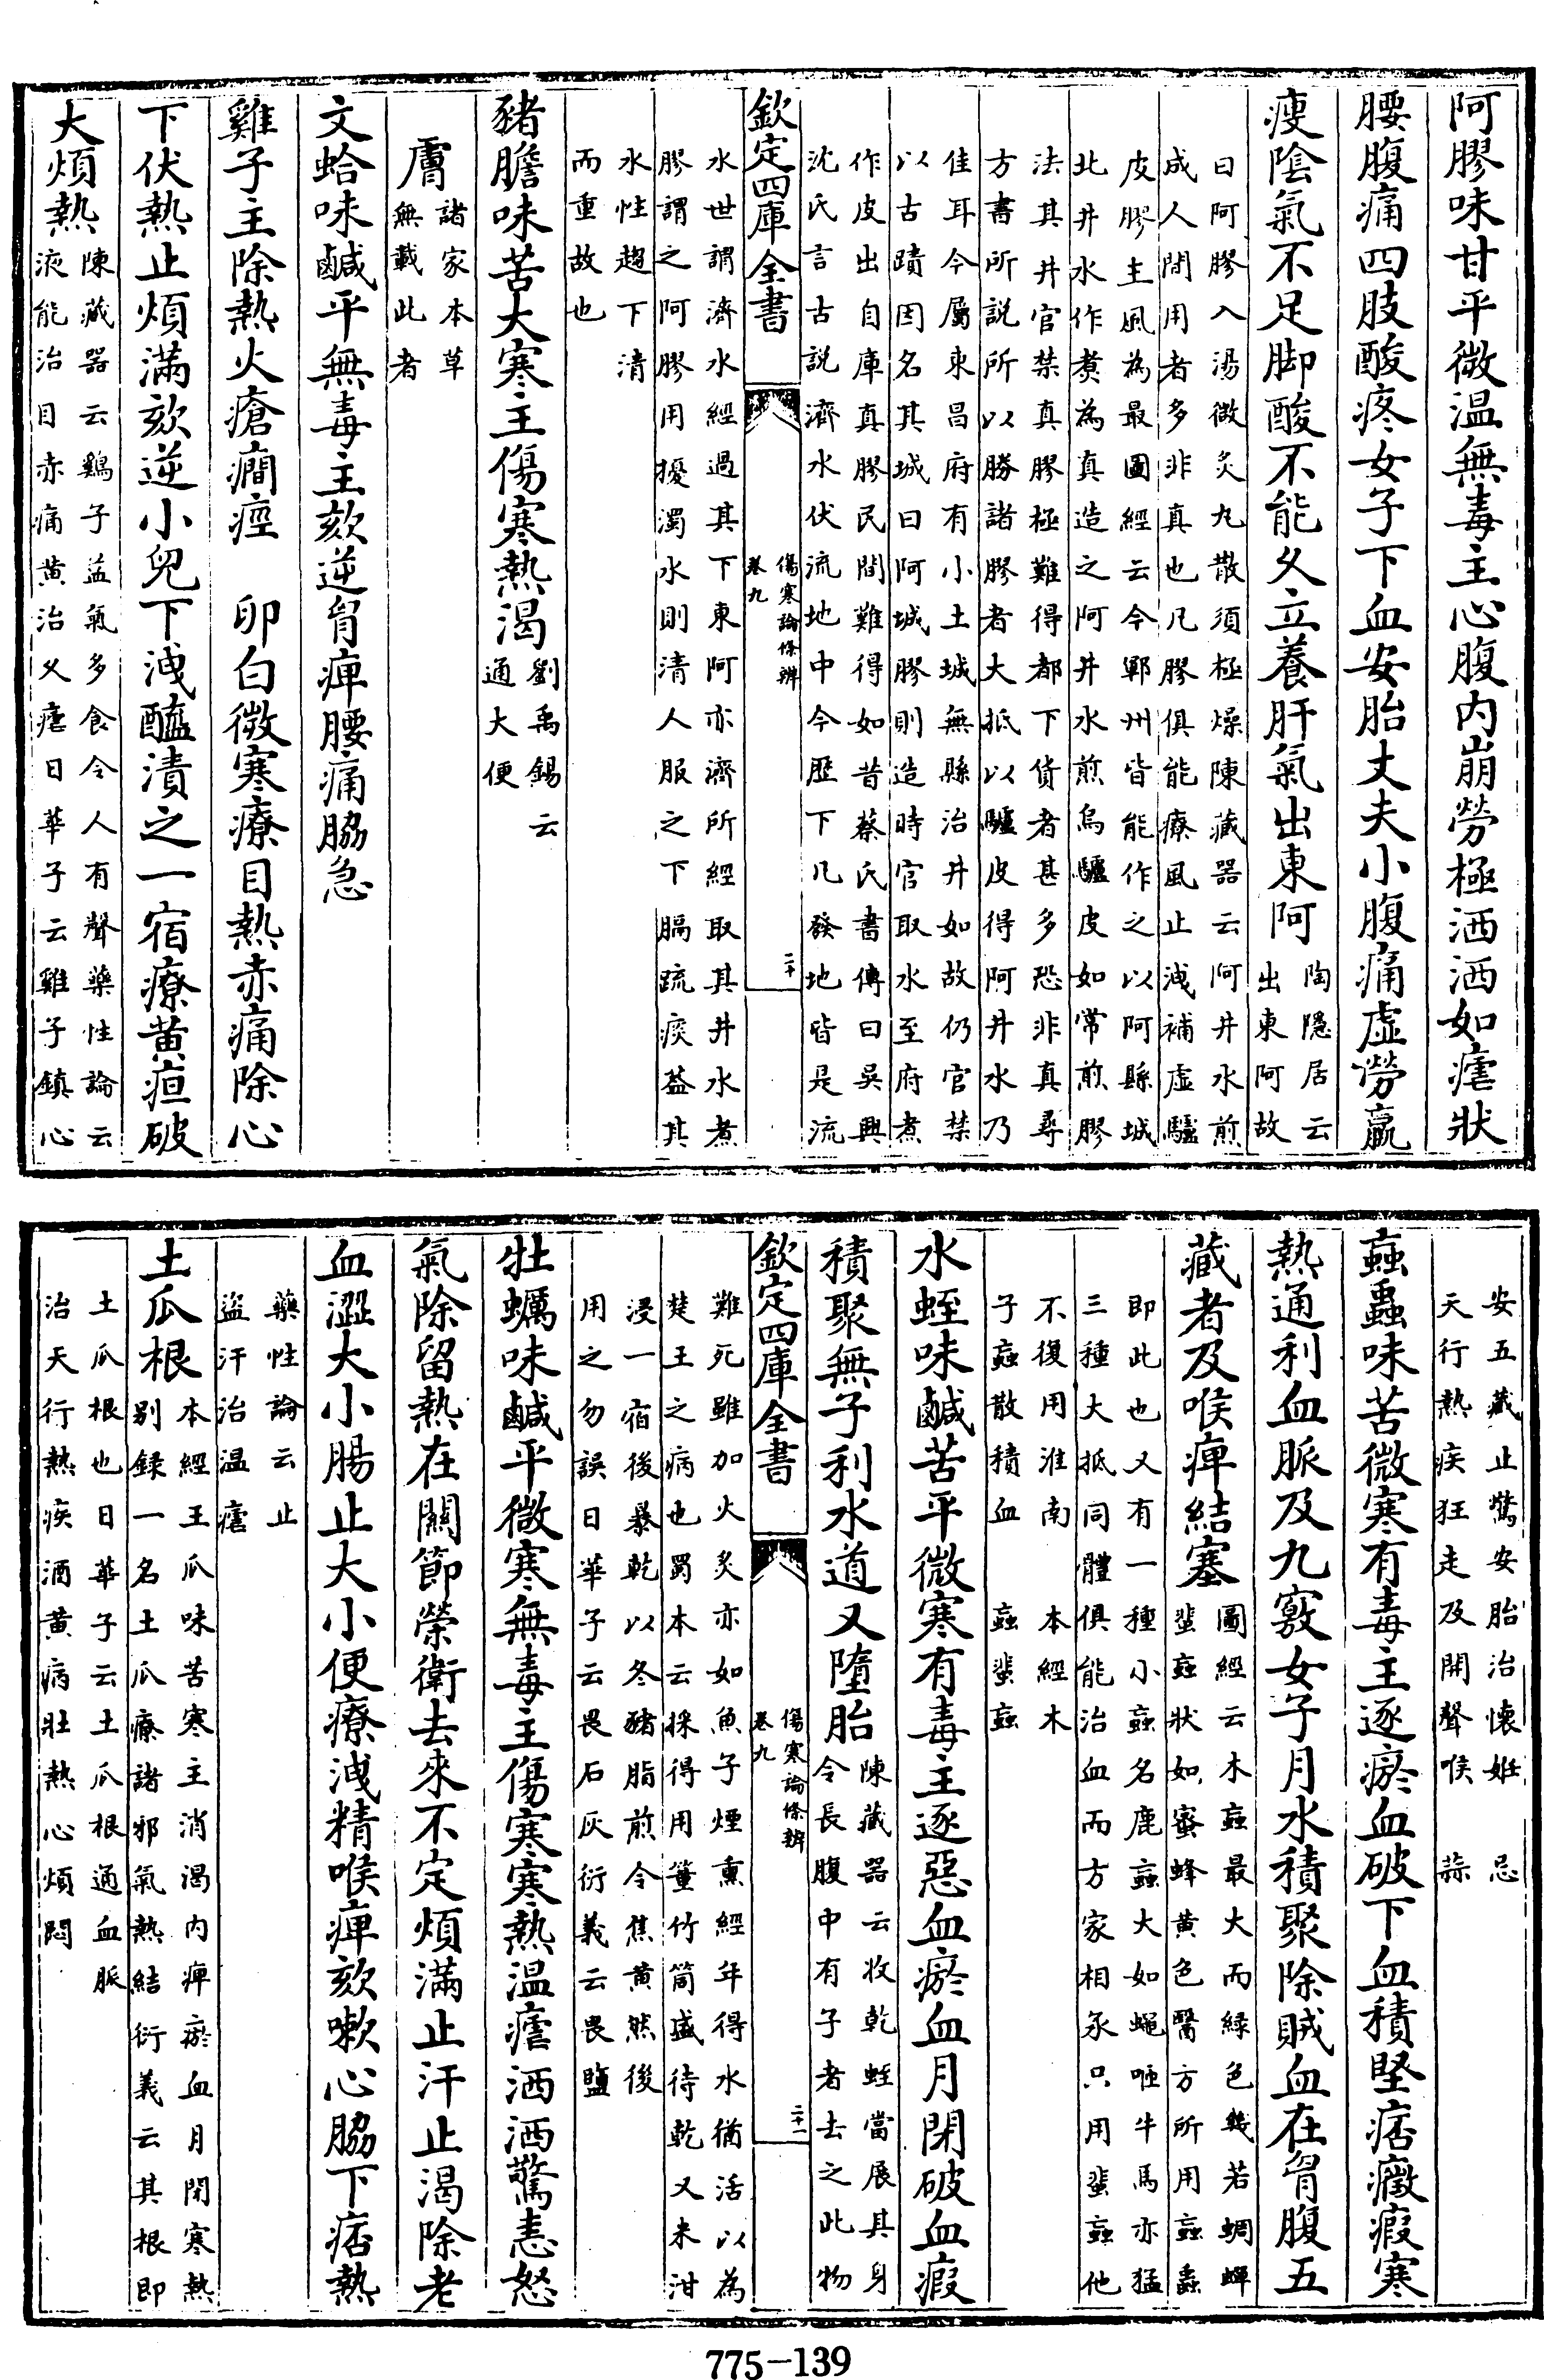 阿膠味甘平微温無毒主心腹内崩勞極洒洒如瘧狀
腰腹痛四肢酸疼女子下血安胎丈夫小腹痛虛勞羸
瘦陰氣不足脚酸不能久立養肝氣出東阿
陶隱居云
出東阿故
曰阿膠入湯微炙丸散須極燥陳藏器云阿井水煎
成人間用者多非真也凡膠俱能療風止洩補虛驢
皮膠主風為最圖經云今鄆州皆能作之以阿縣城
北井水作煑為真造之阿井水煎烏驢皮如常煎膠
法其井官禁真膠極難得都下貨者甚多恐非真尋
方書所説所以勝諸膠者大抵以驢皮得阿井水乃
佳耳今屬東昌府有小土城無縣治井如故仍官禁
以古蹟因名其城曰阿城膠則造時官取水至府煮
作皮出自庫真膠民間難得如昔蔡氏書傳曰吳興
沈氏言古説濟水伏流地中今歷下凡發地皆是流
欽定四庫全書
傷寒論條辨
卷九
二十
水世謂濟水經過其下東阿亦濟所經取其井水煮
膠謂之阿膠用擾濁水則清人服之下膈疏痰葢其
水性趨下清
而重故也
豬膽味苦大寒主傷寒熱渴
劉禹錫云
通大便
膚
諸家本草
無載此者
文蛤味鹹平無毒主欬逆胷痺腰痛脇急
雞子主除熱火瘡癎痙　卵白微寒療目熱赤痛除心
下伏熱止煩滿欬逆小兒下洩醯漬之一宿療黄疸破
大煩熱
陳藏器云鷄子益氣多食令人有聲藥性論云
液能治目赤痛黄治久瘧日華子云雞子鎮心
安五藏止驚安胎治懷姙　忌
天行熱疾狂走及開聲喉　蒜
蝱蟲味苦微寒有毒主逐瘀血破下血積堅痞癥瘕寒
熱通利血脈及九竅女子月水積聚除賊血在胷腹五
藏者及喉痺結塞
圖經云木蝱最大而緑色幾若蜩蟬
蜚蝱狀如蜜蜂黄色醫方所用蝱蟲
即此也又有一種小蝱名鹿蝱大如蠅咂牛馬亦猛
三種大抵同體俱能治血而方家相承只用蜚蝱他
不復用淮南　本經木
子蝱散積血　蝱蜚蝱
水蛭味鹹苦平微寒有毒主逐惡血瘀血月閉破血瘕
積聚無子利水道又墮胎
陳藏器云收乾蛭當展其身
令長腹中有子者去之此物
欽定四庫全書
傷寒論條辨
卷九
二十一
難死雖加火炙亦如魚子煙熏經年得水猶活以為
楚王之病也蜀本云採得用䈽竹筒盛待乾又米泔
浸一宿後暴乾以冬豬脂煎令焦黄然後
用之勿誤日華子云畏石灰衍義云畏鹽
牡蠣味鹹平微寒無毒主傷寒寒熱温瘧洒洒驚恚怒
氣除留熱在關節榮衛去來不定煩滿止汗止渴除老
血澀大小腸止大小便療洩精喉痺欬嗽心脇下痞熱
藥性論云止
盜汗治温瘧
土瓜根
本經王瓜味苦寒主消渴内痺瘀血月閉寒熱
别録一名土瓜療諸邪氣熱結衍義云其根即
土瓜根也日華子云土瓜根通血脈
治天行熱疾酒黄病壯熱心煩悶
775-139